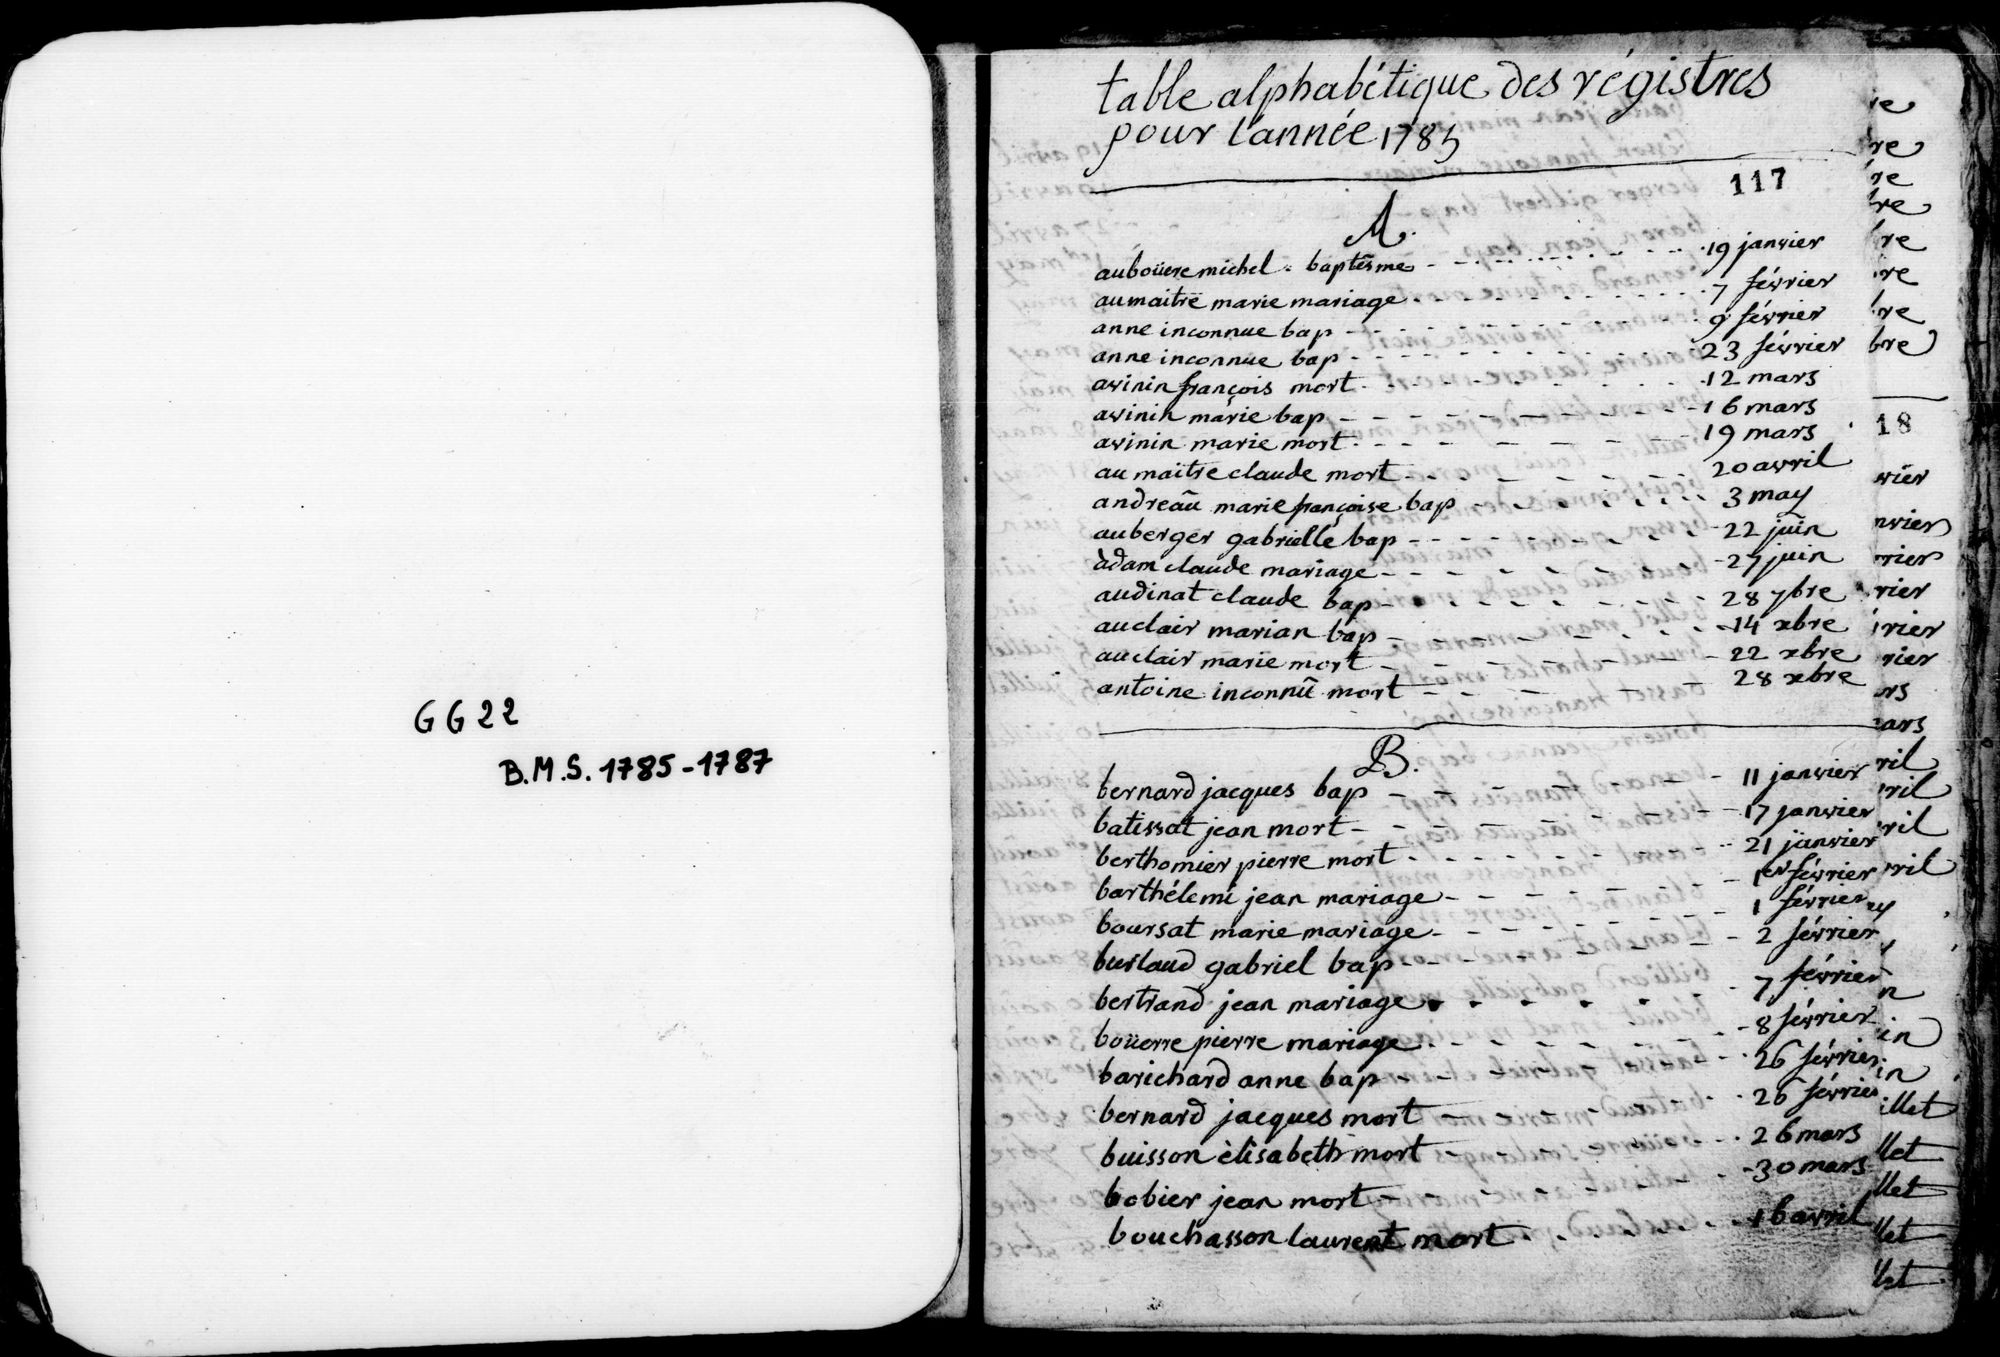 GG22
B.M.S. 1785-1787
table alphabétique des régistres
pour l'année 1785
117
A.
auboüere michel . baptesme - - - 19 janvier
aumaitre marie mariage - - - 7 février
anne inconnue bap - - - 9 février
anne inconnue bap - - - 23 février
avinin françois mort - - - 12 mars
avinin marie bap - - - 16 mars
avinin marie mort - - - 19 mars
aumaitre claude mort - - - 20 avril
andreaü marie françoise bap - - - 3 may
auberger gabrielle bap - - - 22 juin
adam claude mariage - - - 27 juin
audinat claude bap - - - 28 7bre
auclair marian bap - - - 14 xbre
auclair marie mort - - - 22 xbre
antoine inconnü mort - - - 28 xbre
B.
bernard jacques bap - - - 11 janvier
batissat jean mort - - - 17 janvier
berthomier pierre mort - - - 21 janvier
barthélemi jean mariage - - - 1er février
boursat marie mariage - - - 1 février
burlaud gabriel bap - - - 2 février
bertrand jean mariage - - - 7 février
boüerre pierre mariage - - - 8 février
barichard anne bap - - - 26 février
bernard jacques mort - - - 26 février
buisson èlisabeth mort - - - 26 mars
bobier jean mort - - - 30 mars
bouchasson laurent mort - - - 16 avril